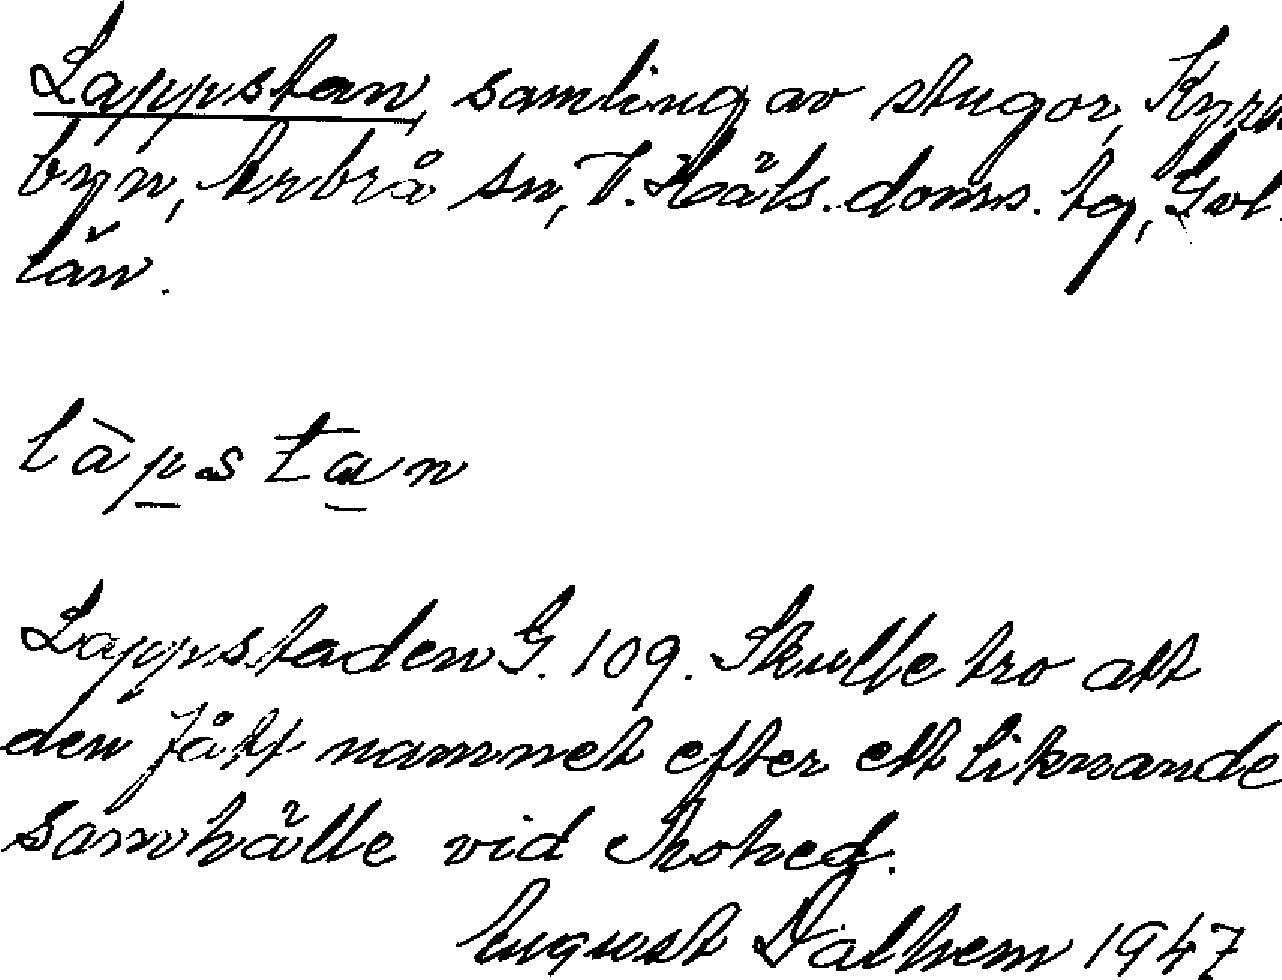 Lappstan, samling av stugor, Kyrk
byn, Arbrå sn, V. Häls. doms. tg, Gvl.
län.
làpstan
Lappstaden G. 109. Skulle tro att
den fått namnet efter ett liknande
samhälle vid Mohed.
August Dalhem 1947